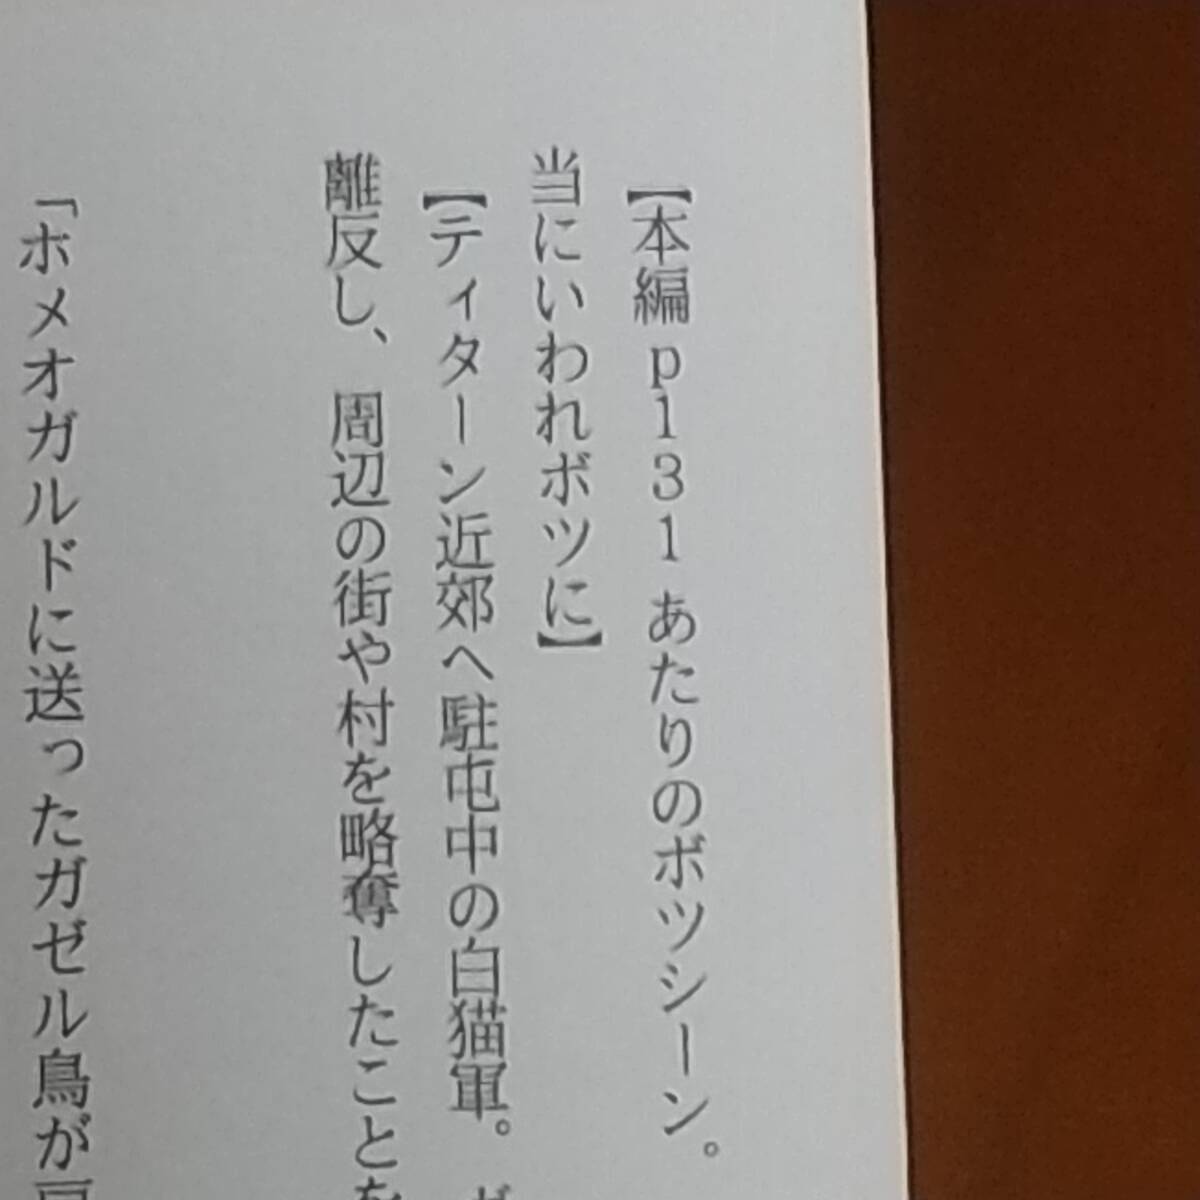 【本編p131あたりのボツシーン。
当にいわれボツに】
【ティターン近郊へ駐屯中の白猫軍。
離反し、周辺の街や村を略奪したことを
「ホメオガルドに送ったガゼル鳥が